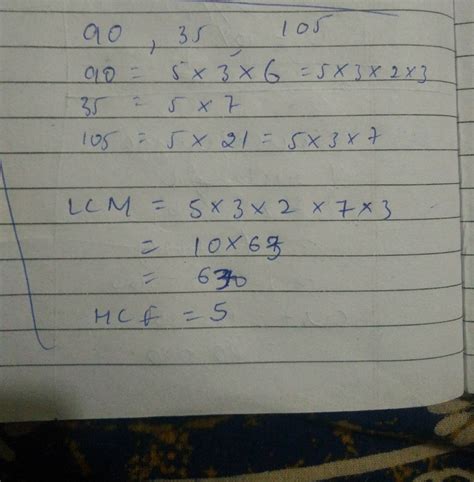 90 , 35 , 105
90 = 5 × 3 × 6 = 5 × 3 × 2 × 3
35 = 5 × 7
105 = 5 × 21 = 5 × 3 × 7
LCM = 5 × 3 × 2 × 7 × 3
= 10 × 63
= 630
HCF = 5